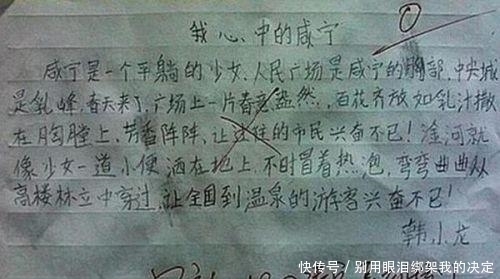 我心中的咸宁
咸宁是一个平躺的少女,人民广场是咸宁的胸部,中央城
是乳峰,春天来了,广场上一片春意盎然,百花齐放如乳汁撒
在胸膛上,芳香阵阵,让过往的市民兴奋不已!淦河就
像少女一道小便洒在地上,不时冒着热泡,弯弯曲曲从
高楼林立中穿过,让全国到温泉的游客兴奋不已!
韩小龙
快传号/别用眼泪绑架我的决定